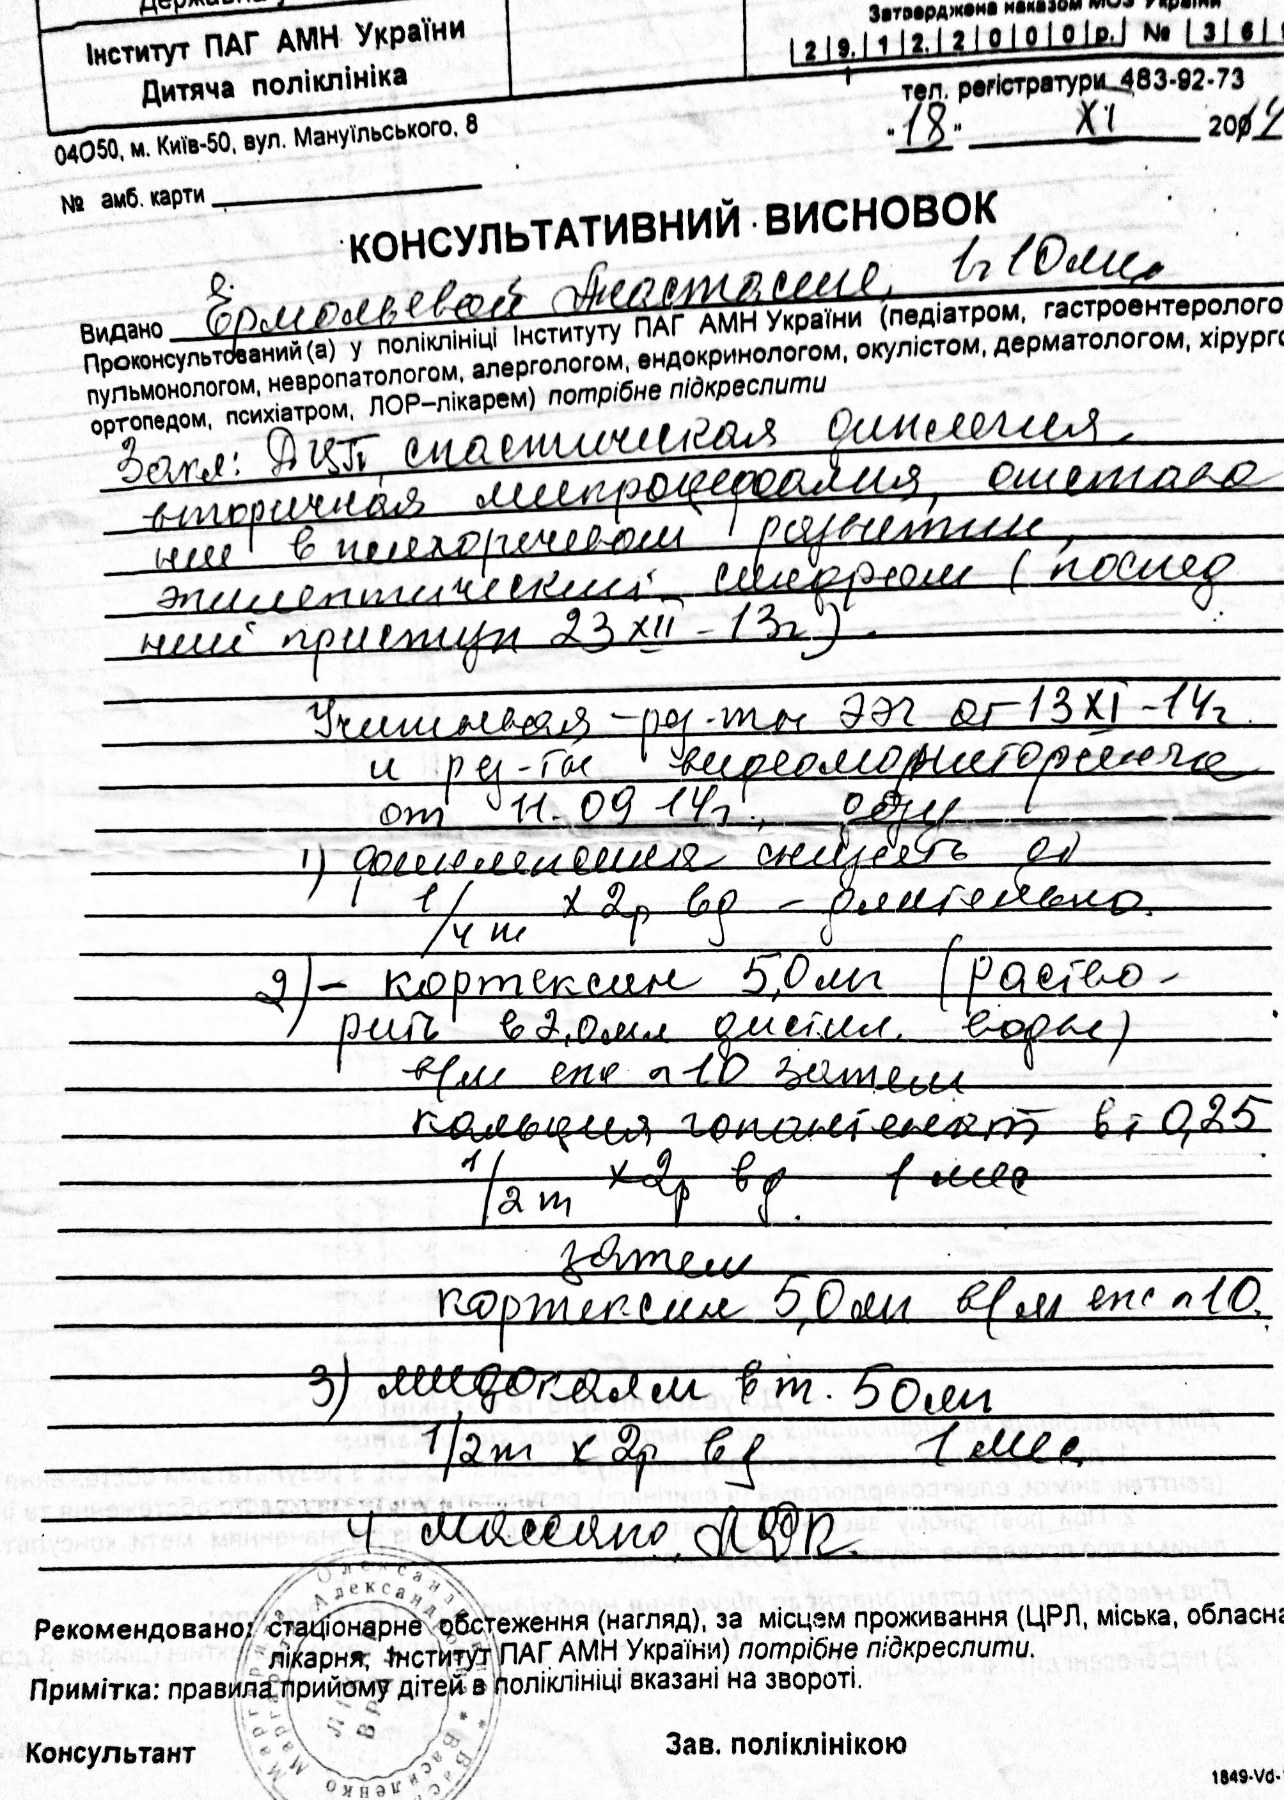 Інститут ПАГ АМН України
Дитяча поліклініка
Затверджена наказом МОЗ України
29.12.2000р. № 36
тел. регістратури 483-92-73
04050, м. Київ-50, вул. Мануїльського, 8
"18" XI 2014
№ амб. карти
КОНСУЛЬТАТИВНИЙ ВИСНОВОК
Видано Ермольевой Анастасие, 1г 10мес
Проконсультований(а) у поліклініці Інституту ПАГ АМН України (педіатром, гастроентеролого
пульмонологом, невропатологом, алергологом, ендокринологом, окулістом, дерматологом, хірурго
ортопедом, психіатром, ЛОР–лікарем) потрібне підкреслити
Закл: ДЦП, спастическая диплегия,
вторичная микроцефалия, отстава
ние в психоречевом развитии,
эпилептический синдром (послед
ний приступ 23 XII - 13г).
Учитывая рез-ты ЭЭГ от 13 XI - 14г
и рез-ты видеомониторинга
от 11.09 14г.,
1) снизить до
1/4 т х 2р вд - длительно.
2) - кортексин 5,0 мг (раство-
рить в 2,0 мл дистил. воды)
в/м N 10 затем
кальция гопантенат в т 0,25
1/2 т х 2р вд. 1 мес
затем
кортексин 5,0 мг в/м N 10.
3) мидокалм в т. 50 мг
1/2 т х 2р вд 1 мес
4. Массаж, ЛФК.
Рекомендовано: стаціонарне обстеження (нагляд), за місцем проживання (ЦРЛ, міська, обласна
лікарня, Інститут ПАГ АМН України) потрібне підкреслити.
Примітка: правила прийому дітей в поліклініці вказані на звороті.
Консультант
Зав. поліклінікою
1849-Vd-